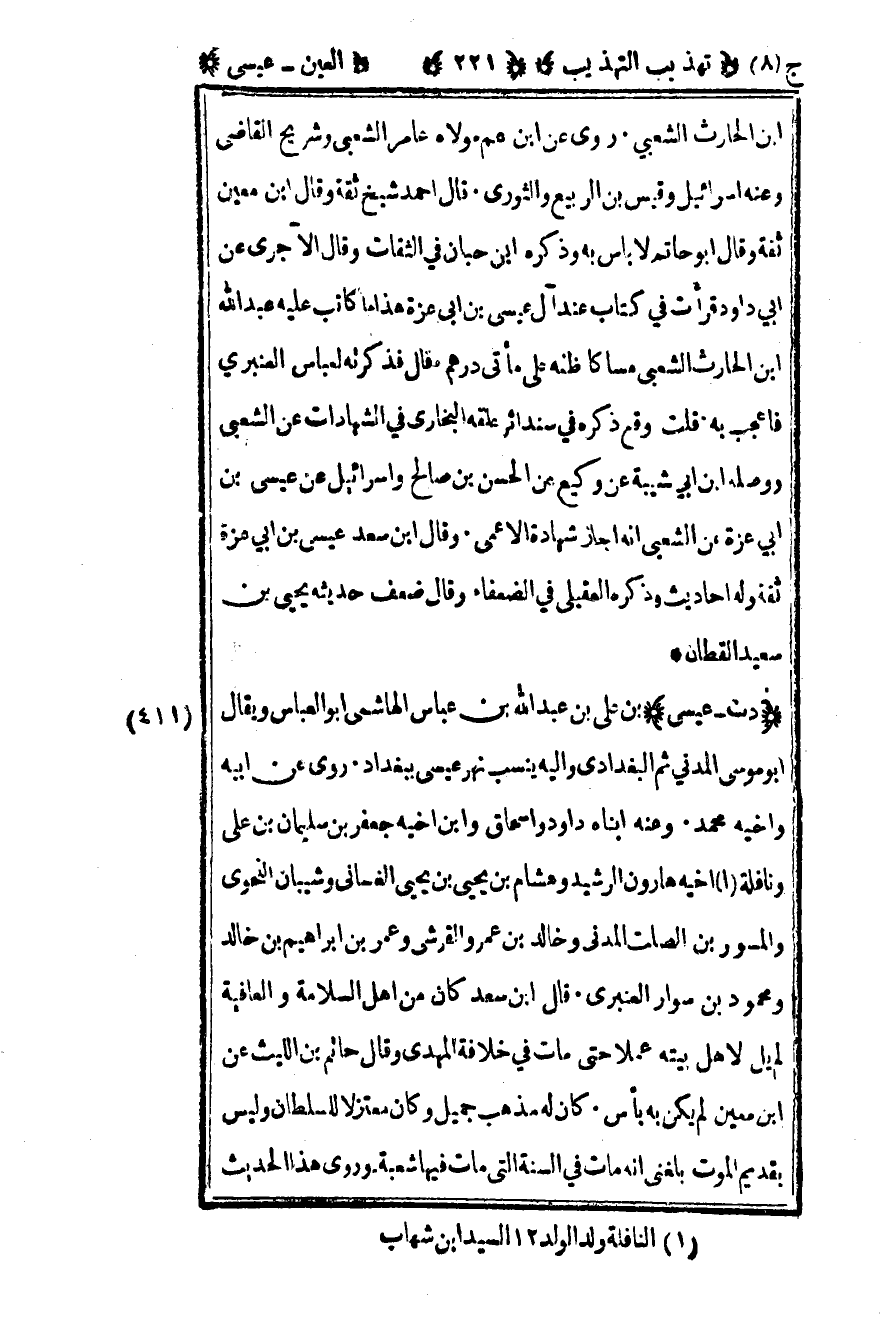 ج (٨) تهذيب التهذيب ٢٢١ العين - عيسى
ابن الحارث الشعبي ٠ روى عن ابن عم مولاه عامر الشعبي وشريح القاضى
وعنه اسرائيل وقيس بن الربيع والثورى ٠ قال احمد شيخ ثقة وقال ابن معين
ثقة وقال ابو حاتم لا باس به وذكره ابن حبان في الثقات وقال الآجرى عن
ابي داود قرأت في كتاب عند آل عيسى بن ابى عزة هذا ما كاتب عليه عبد الله
ابن الحارث الشعبي مسا كاظنه على مأتى درهم ٠ قال فذكرته لعباس العنبري
فاعجب به ٠ قلت وقع ذكره في سند اثر علقه البخارى في الشهادات عن الشعبى
ووصله ابن ابي شيبة عن وكيع عن الحسن بن صالح واسرائيل عن عيسى بن
ابي عزة عن الشعبي انه اجاز شهادة الاعمى ٠ وقال ابن سعد عيسى بن ابي عزة
ثقة وله احاديث وذكره العقيلى في الضعفاء وقال ضعف حديثه يحيى بن
سعيد القطان *
(٤١١) ﴿ دت - عيسى ﴾ بن على بن عبد الله بن عباس الهاشمى ابو العباس ويقال
ابو موسى المدني ثم البغدادى واليه ينسب نهر عيسى ببغداد ٠ روى عن ابيه
واخيه محمد ٠ وعنه ابناه داود واسحاق وابن اخيه جعفر بن سليمان بن على
ونافلة (١) اخيه هارون الرشيد وهشام بن يحيى بن يحيى الغسانى وشيبان النحوى
والمسور بن الصلت المدنى وخالد بن عمرو القرشى وعمر بن ابراهيم بن خالد
ومحمود بن سوار العنبرى ٠ قال ابن سعد كان من اهل السلامة و العافية
لم يل لاهل بيته عملا حتى مات في خلافة المهدى وقال حاتم بن الليث عن
ابن معين لم يكن به بأس ٠ كان له مذهب جميل وكان معتزلا للسلطان وليس
بقديم الموت بلغنى انه مات في السنة التى مات فيها شعبة ٠ وروى هذا الحديث
(١) النافلة ولد الولد ١٢ السيد ابن شهاب